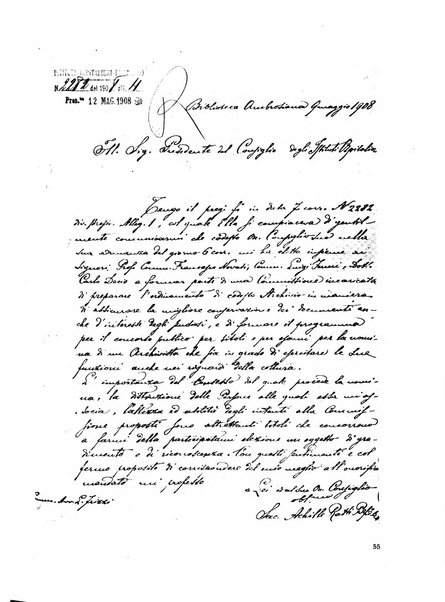 N. 2282 del 190
Prot.llo 12 MAG. 1908
R
Biblioteca Ambrosiana 9 maggio 1908
Ill. Sig. Presidente del Consiglio degli Istituti Ospitalieri
Tengo il preg. f. in data 7 corr. N 2282
div. Prefid. Alleg. 1, col quale Ella si compiaceva d'gentil
mente comunicarmi che codesto On. Consiglio aveva nella
sua adunanza del giorno 6 corr. mi ha eletto insieme ai
Signori Prof. Comm. Francesco Novati, Comm. Luigi Dott.
Carlo Decio a formar parte di una Commissione incaricata
di preparare l'ordinamento di codesto Archivio in maniera
di assicurare la migliore conservazione dei documenti an-
che d'interesse degli studiosi, e di formare il programma
per il concorso pubblico per titoli e per esami per la nomi-
na di un Archivista che sia in grado di esercitare le sue
funzioni anche nei riguardi della coltura.
L'importanza del Consesso dal quale procede la nomi-
na, la distinzione delle Persone alle quali essa mi as-
socia, l'altezza ed utilità degli intenti alla Commis-
sione proposti sono altrettanti titoli che concorrono
a farmi della partecipatami elezione un oggetto di gra-
dimento e di riconoscenza. Con questi sentimenti e col
fermo proposito di corrispondere del mio meglio all'onorifico
mandato mi professo
a Lei ed al suo On. Consiglio
obbl.mo
Sac. Achille Ratti
55